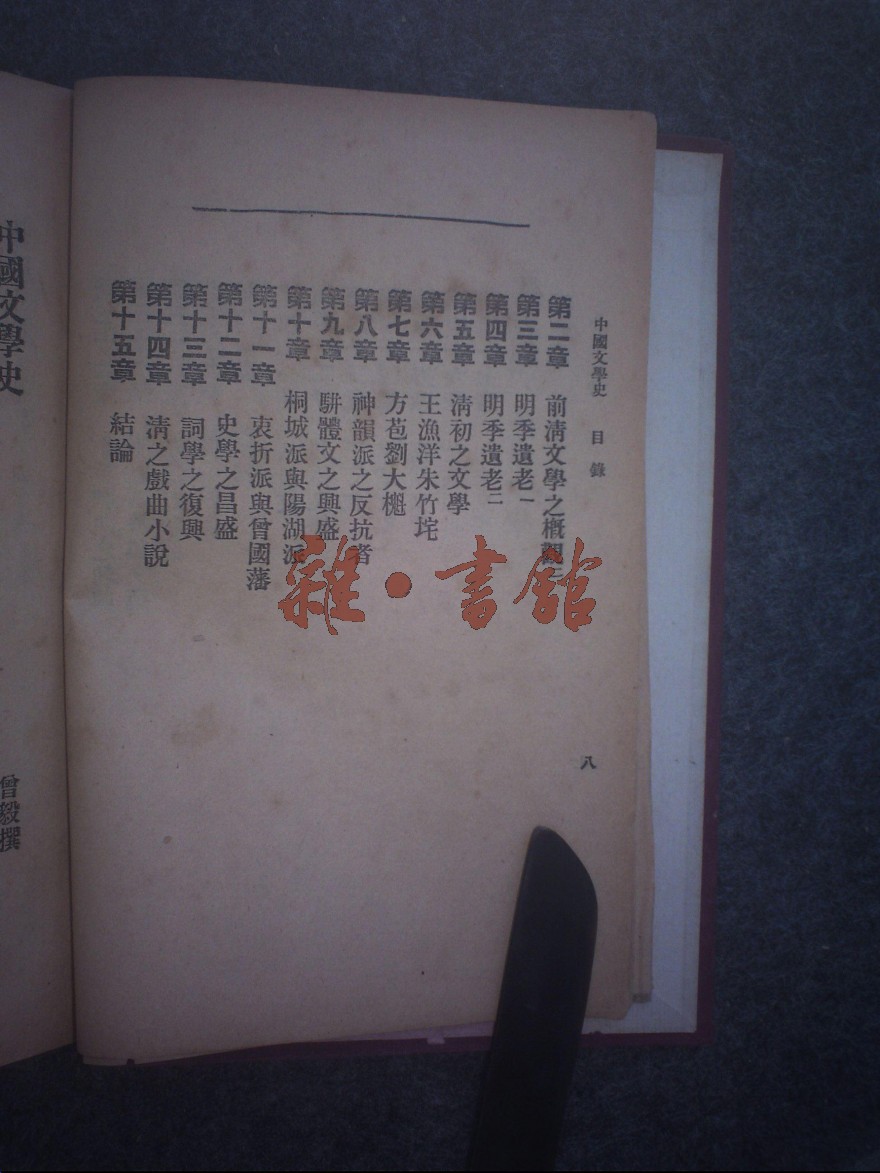 中國文學史 目錄
第二章 前淸文學之槪觀二
第三章 明季遺老一
第四章 明季遺老二
第五章 淸初之文學
第六章 王漁洋朱竹垞
第七章 方苞劉大櫆
第八章 神韻派之反抗者
第九章 駢體文之興盛
第十章 桐城派與陽湖派
第十一章 衷折派與曾國藩
第十二章 史學之昌盛
第十三章 詞學之復興
第十四章 淸之戲曲小說
第十五章 結論
八
中國文學史
曾毅撰
雜·書館